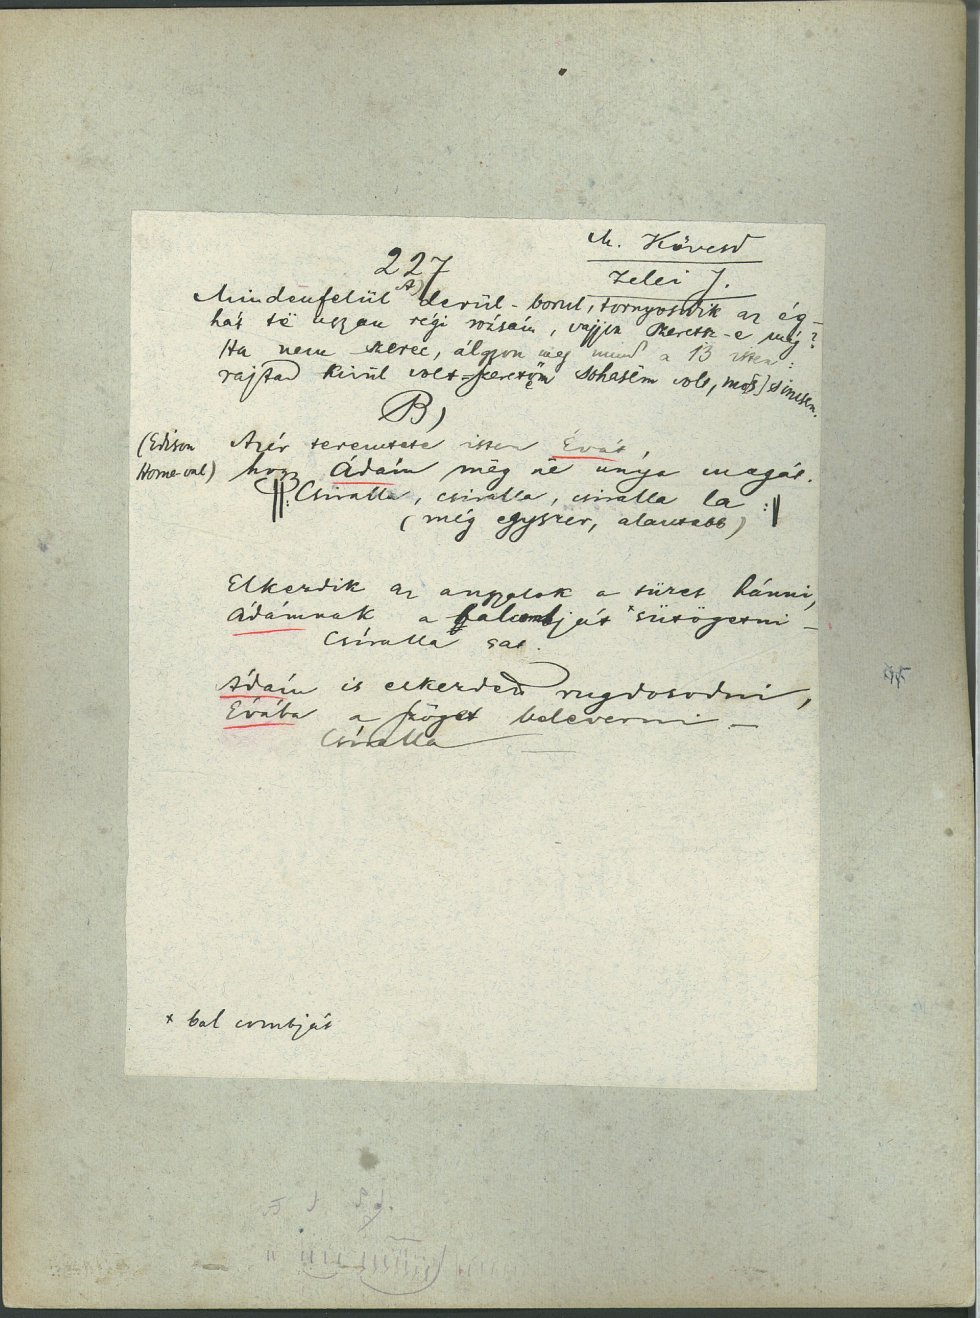 M. Kövesd
Zelei J.
227
A)
Mindenfelül derül-borul, tornyosodik az ég –
hát të uggyan régi rózsám, vajjon szeretsz-e még?
Ha nem szerec, álgyon meg mind a 13 isten:
rajtad kivűl volt szeretőm sohasëm volt, most sincsen.
B)
(Edison
Home-val)
Azér teremtete isten Évát,
hogy Ádám még në únja magát.
‖: Csiralla, csiralla, csiralla la :‖
(még egyszer, alantabb)
Elkezdik az angyalok a szüret hánni,
Ádámnak a * sütögetni –
Csíralla sat.
Ádám is elkezded rugdosodni,
Évába a szöget beleverni –
Csíralla
* bal combját